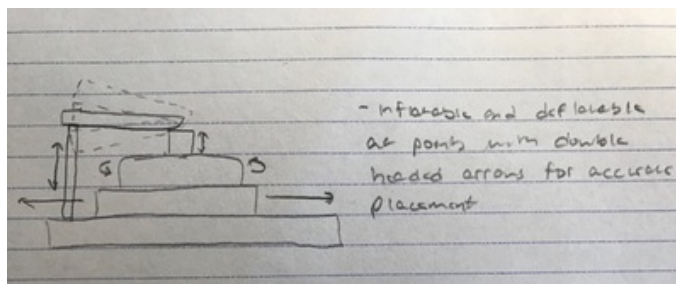 - Inflatable and deflatable
at points with double
headed arrows for accurate
placement